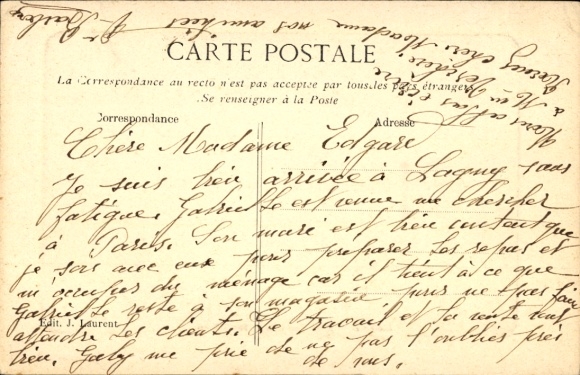 CARTE POSTALE
La Correspondance au recto n'est pas acceptée par tous les pays étrangers
Se renseigner à la Poste
Correspondance
Adresse
Chère Madame Edgard
Je suis bien arrivée à Lagny sans
fatigue. Gabrielle est venue me chercher
à Paris. Son mari est bien content que
je sois avec eux pour préparer les repas et
m'occuper du ménage car il tient à ce que
Gabrielle reste à son magasin pour ne pas faire
attendre les clients. Le travail et la vente vont
bien. Gaby me prie de ne pas l'oublier près
de vous.
Edit. J. Laurent
Recevez chère Madame nos amitiés